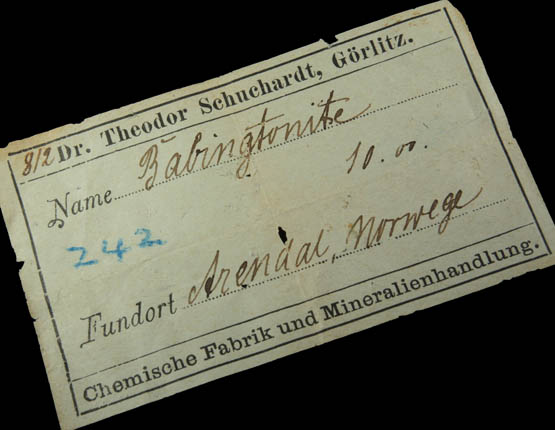 Dr. Theodor Schuchardt, Görlitz.
8/2
Name Babingtonite
10.00.
242
Fundort Arendal, Norwege
Chemische Fabrik und Mineralienhandlung.